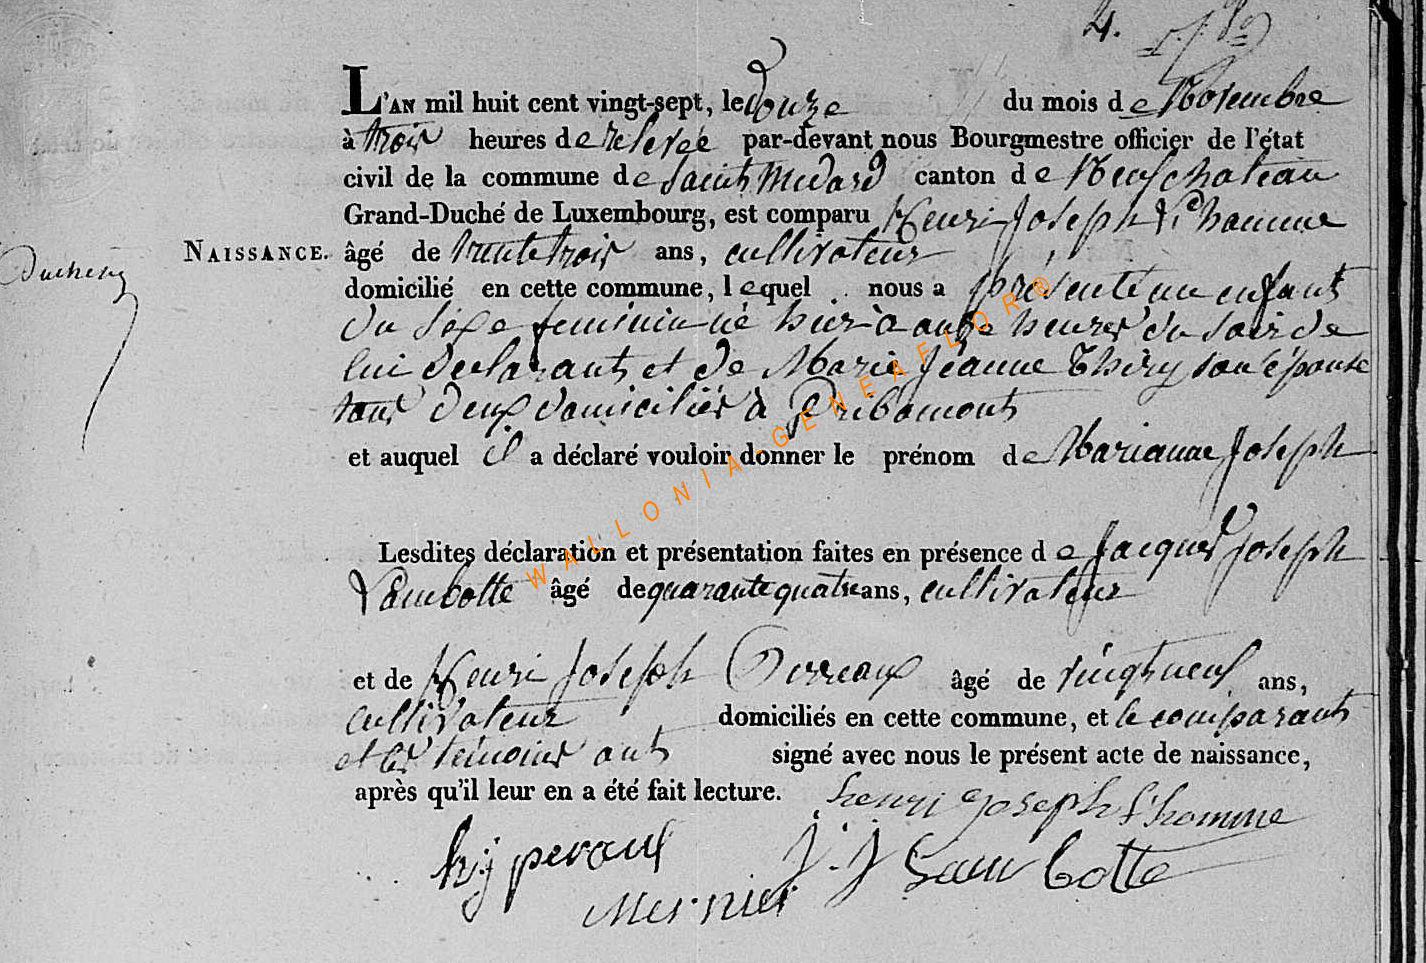 4.
L'AN mil huit cent vingt-sept, le douze du mois de Novembre
à trois heures de relevée par-devant nous Bourgmestre officier de l'état
civil de la commune de Saint Médard canton de Neufchateau
Grand-Duché de Luxembourg, est comparu Henri Joseph L'homme
NAISSANCE. âgé de trente trois ans, cultivateur
domicilié en cette commune, lequel nous a présenté un enfant
du sexe feminin né hier à onze heures du soir de
lui declarant et de Marie Jeanne Thiry son épouse
tous deux domiciliés à Gribomont
et auquel il a déclaré vouloir donner le prénom de Marianne Joseph
Lesdites déclaration et présentation faites en présence de Jacques Joseph
Lambotte âgé de quarante quatre ans, cultivateur
et de Henri Joseph Perreaux âgé de vingt neuf ans,
cultivateur domiciliés en cette commune, et le comparant
et les témoins ont signé avec nous le présent acte de naissance,
après qu'il leur en a été fait lecture.
henri joseph l'homme
h j peraux
J. J Lambotte
Mernier
WALLONIA-GENEAFLOR®